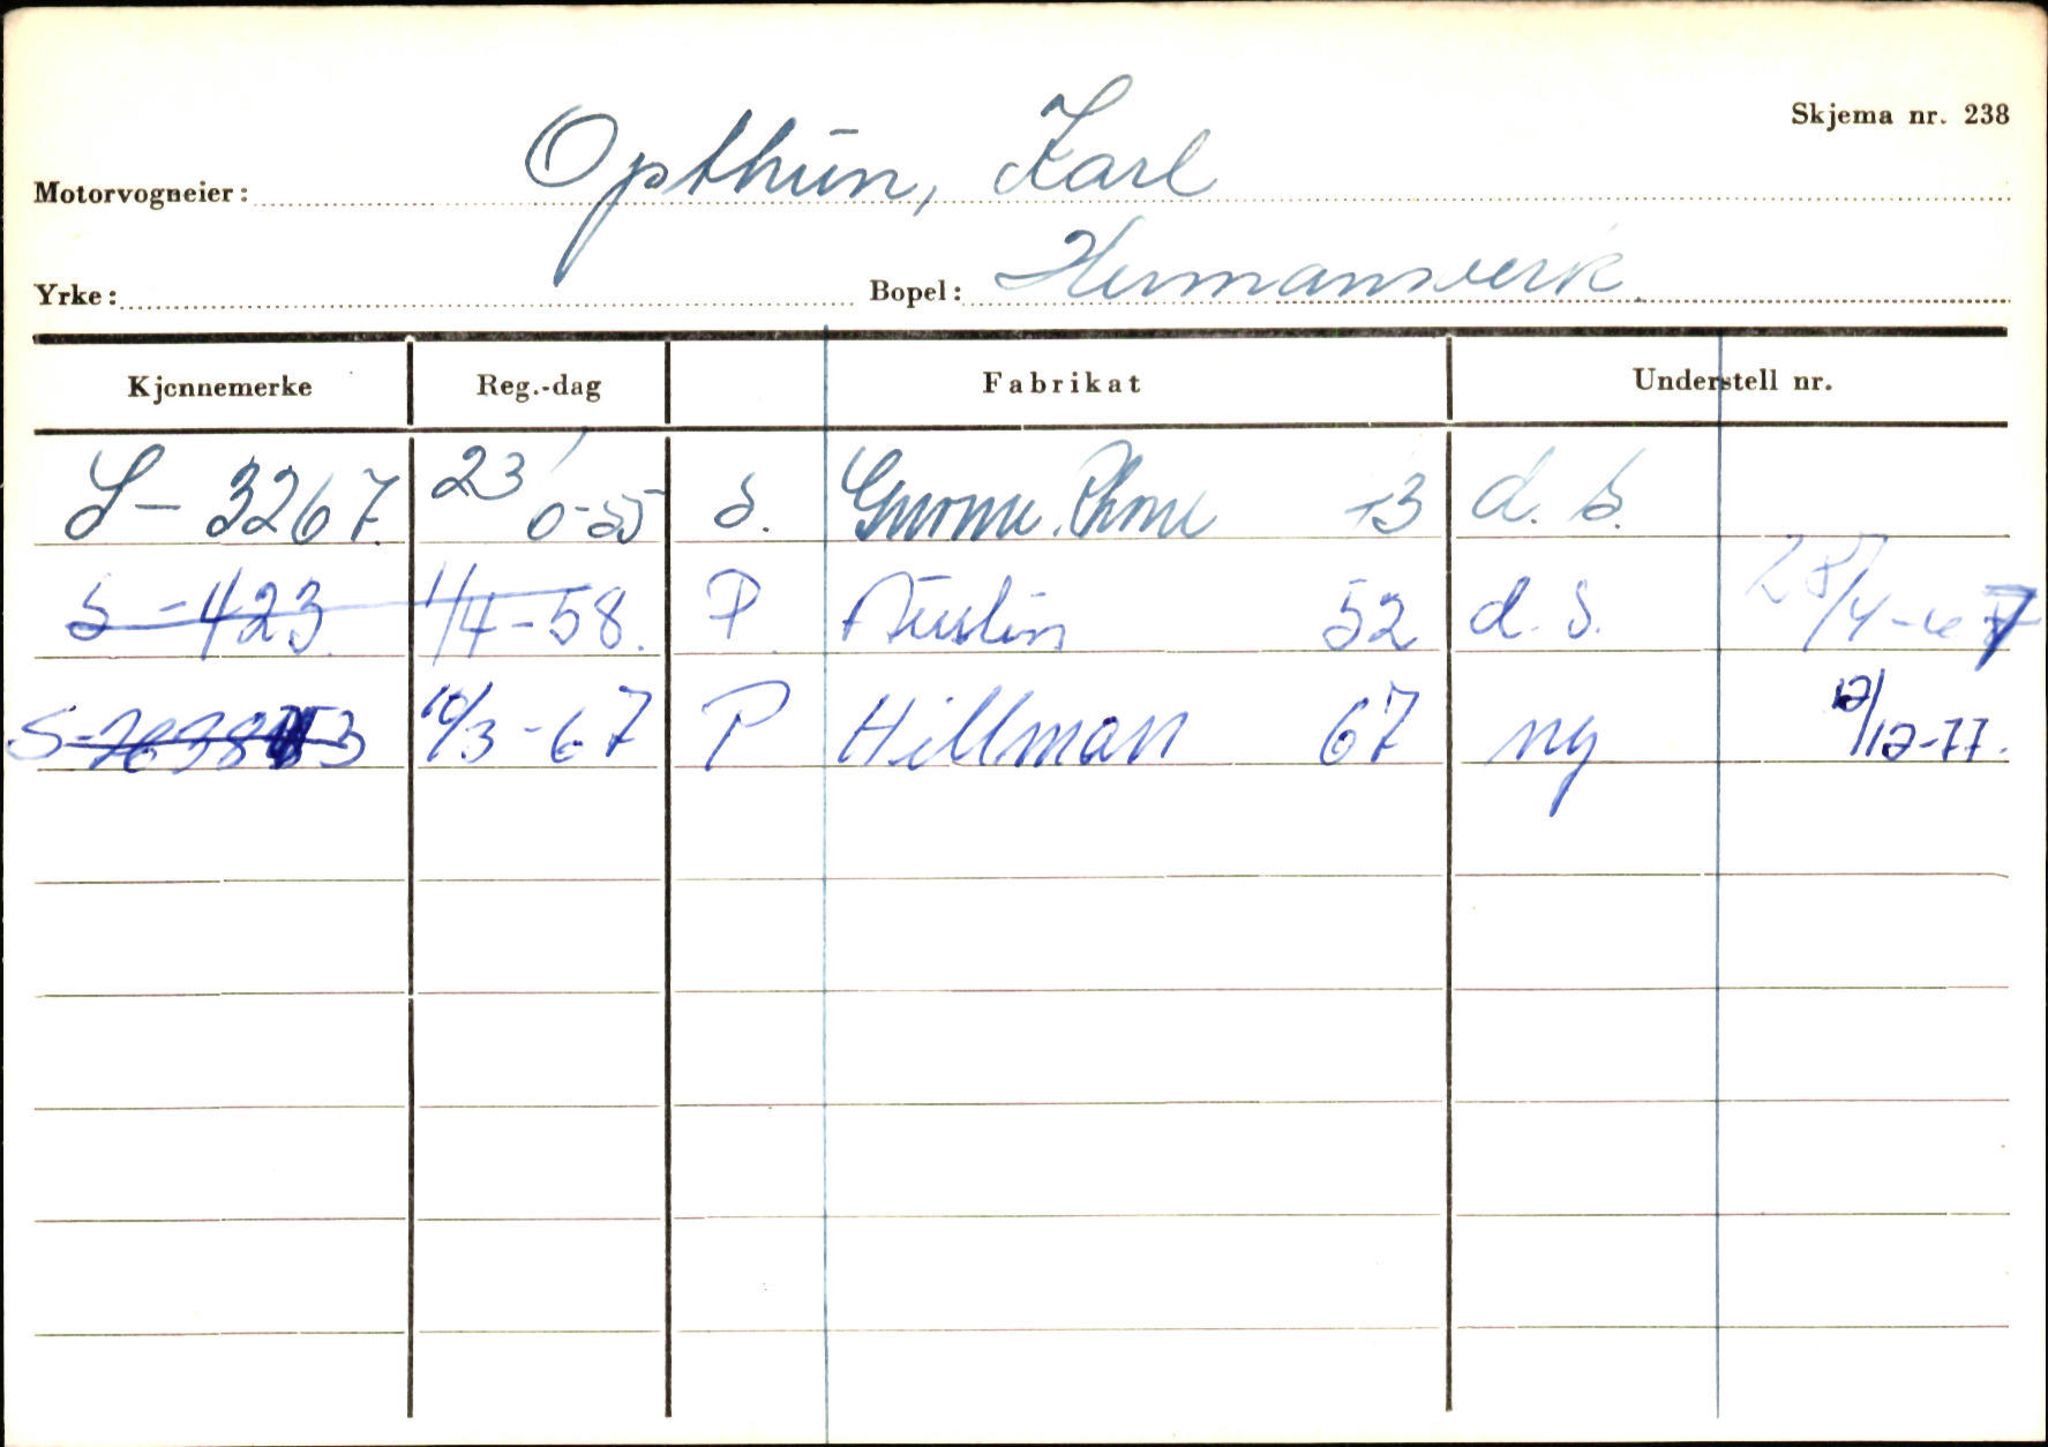 Skjema nr. 238
Motorvogneier: Opthun, Karl
Yrke: Bopel: Hermansverk.
Kjennemerke Reg.-dag Fabrikat Understell nr.
S-3267. 23/ S. Gnome Rhone d. S.
S-423. 1/4-58. P. Austin 52 d. S. 28/4-67
10/3-67 P Hillman 67 ny 12/12-77.